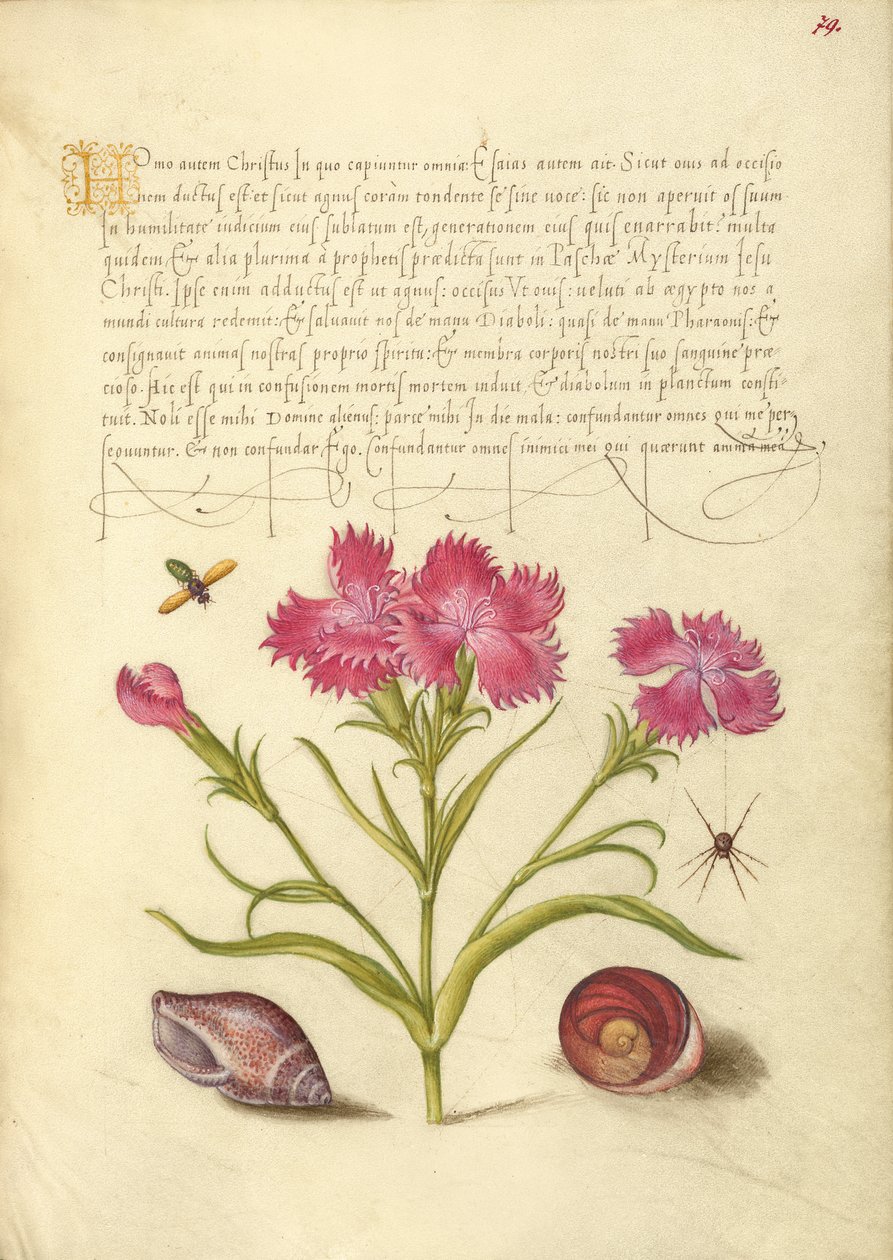 79.
Homo autem Christus In quo capiuntur omnia: Esaias autem ait. Sicut ouis ad occisio
nem ductus est: et sicut agnus coràm tondente se sine uoce: sic non aperuit os suum
In humilitate iudicium eius sublatum est, generationem eius quis enarrabit? multa
quidem, & alia plurima à prophetis prædicta sunt in Paschæ Mysterium Iesu
Christi. Ipse enim adductus est ut agnus: occisus Vt ouis: ueluti ab ægypto nos a
mundi cultura redemit: & saluauit nos de manu Diaboli: quasi de manu Pharaonis: &
consignauit animas nostras proprio spiritu: & membra corporis nostri suo sanguine præ-
cioso. Hic est qui in confusionem mortis mortem induit, & diabolum in planctum consti-
tuit. Noli esse mihi Domine alienus: parce mihi In die mala: confundantur omnes qui me per
sequuntur. & non confundar, Ego. Confundantur omnes inimici mei qui quærunt animã meã.